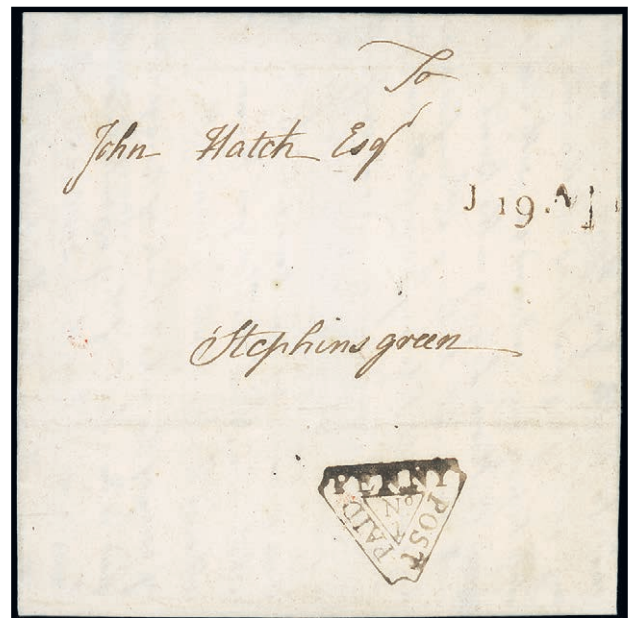 To
John Hatch Esqr
J 19
Stephins green
PENNY
POST
PAID
No